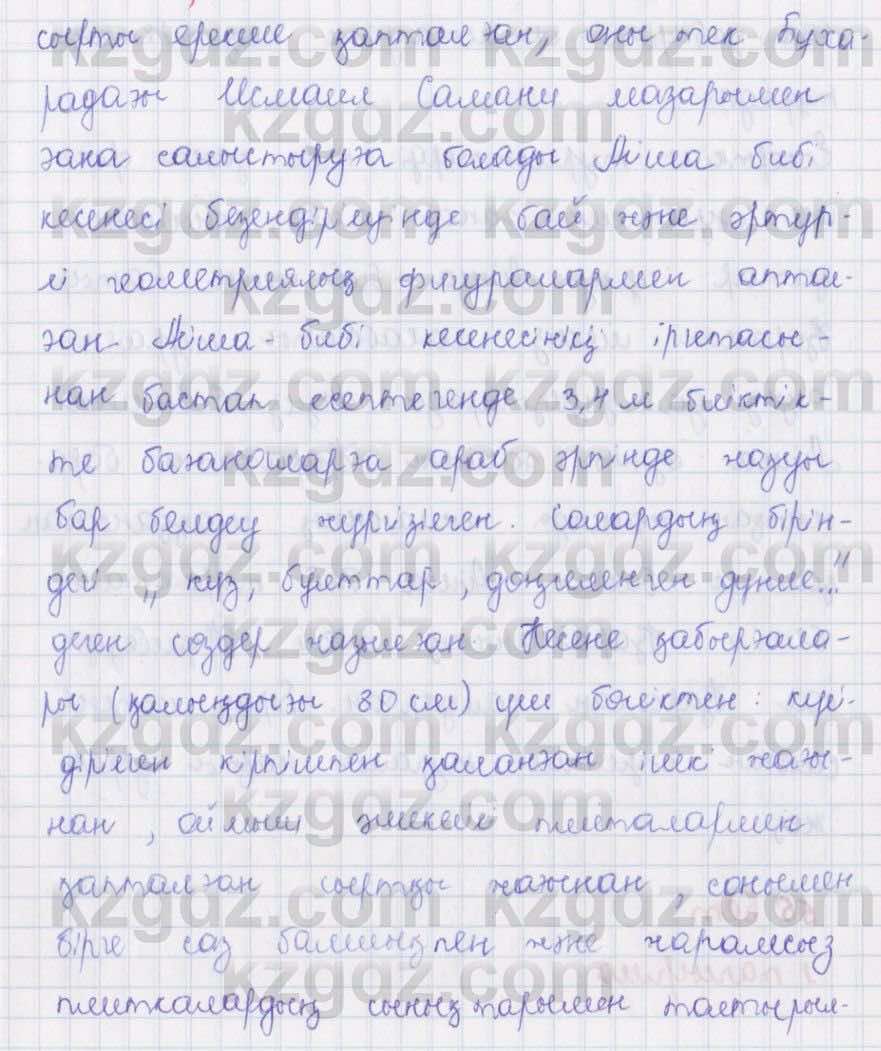 сырты ерекше қапталған, оны тек Буха-
радағы Исмаил Самани мазарымен
ғана салыстыруға болады Айша бибі
кесенесі безендірілуінде бай және әртүр-
лі геометриялық фигуралармен аптал-
ған. Айша-бибі кесенесінің іргетасы-
нан бастап есептегенде 3,4 м биіктік-
те бағаналарға араб әрпінде жазуы
бар белдеу жүргізілген. Солардың бірін-
де „ күз, бұлттар, дөңгеленген дүние..."
деген сөздер жазылған Кесене қабырғала-
ры (қалыңдығы 80 см) үш бөліктен: күй-
дірілген кірпішпен қаланған ішкі жағы-
нан, ойлыш әшекейлі плиталармен
қапталған сыртқы жағынан, сонымен
бірге саз балшықпен және жарамсыз
плиткалардың сынықтарымен толтырыл-
kzgdz.com